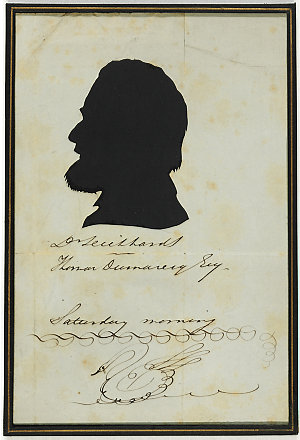 Dr Leichhardt
Thomas Dumaresq Esq.
Saturday morning